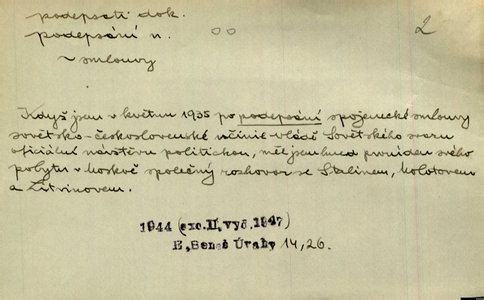 podepsati dok.
podepsání n. oo 2
~ smlouvy
Když jsem v květnu 1935 po podepsání spojenecké smlouvy
sovětsko-československé učinil vládě Sovětského svazu
oficiální návštěvu politickou, měl jsem hned první den svého
pobytu v Moskvě společný rozhovor se Stalinem, Molotovem
a Litvinovem.
1944 (exc.II, vyd.1947)
E. Beneš Úvahy 14,26.